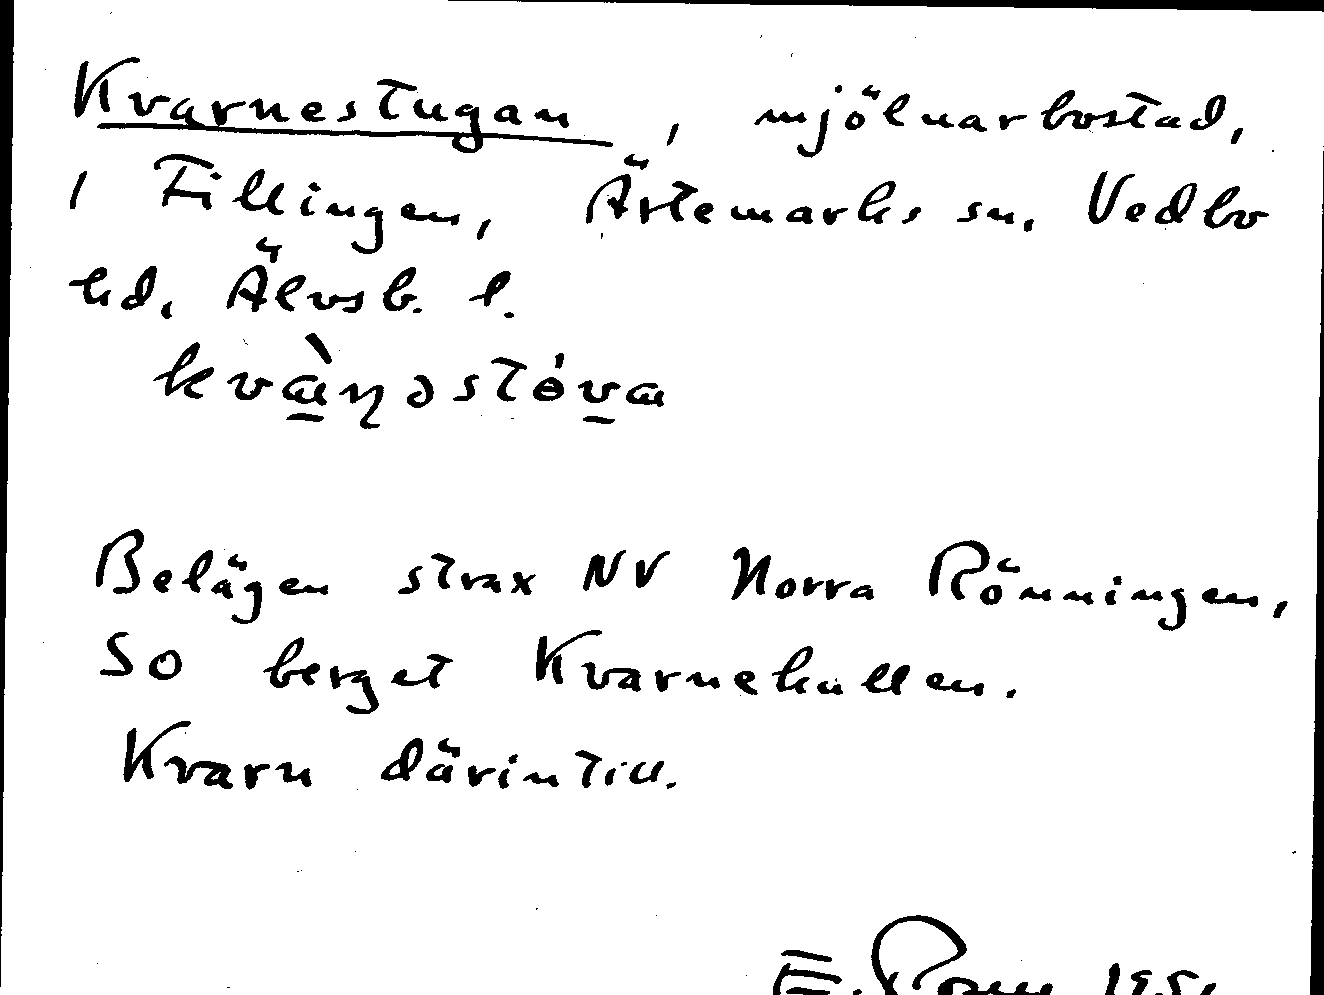 Kvarnestugan, mjölnarbostad,
1 Fillingen, Ärtemarks sn. Vedbo
hd, Älvsb. l.
kvàɳəstɵ́va
Belägen strax NV Norra Rönningen,
SO berget Kvarnekullen.
Kvarn därintill.
E.